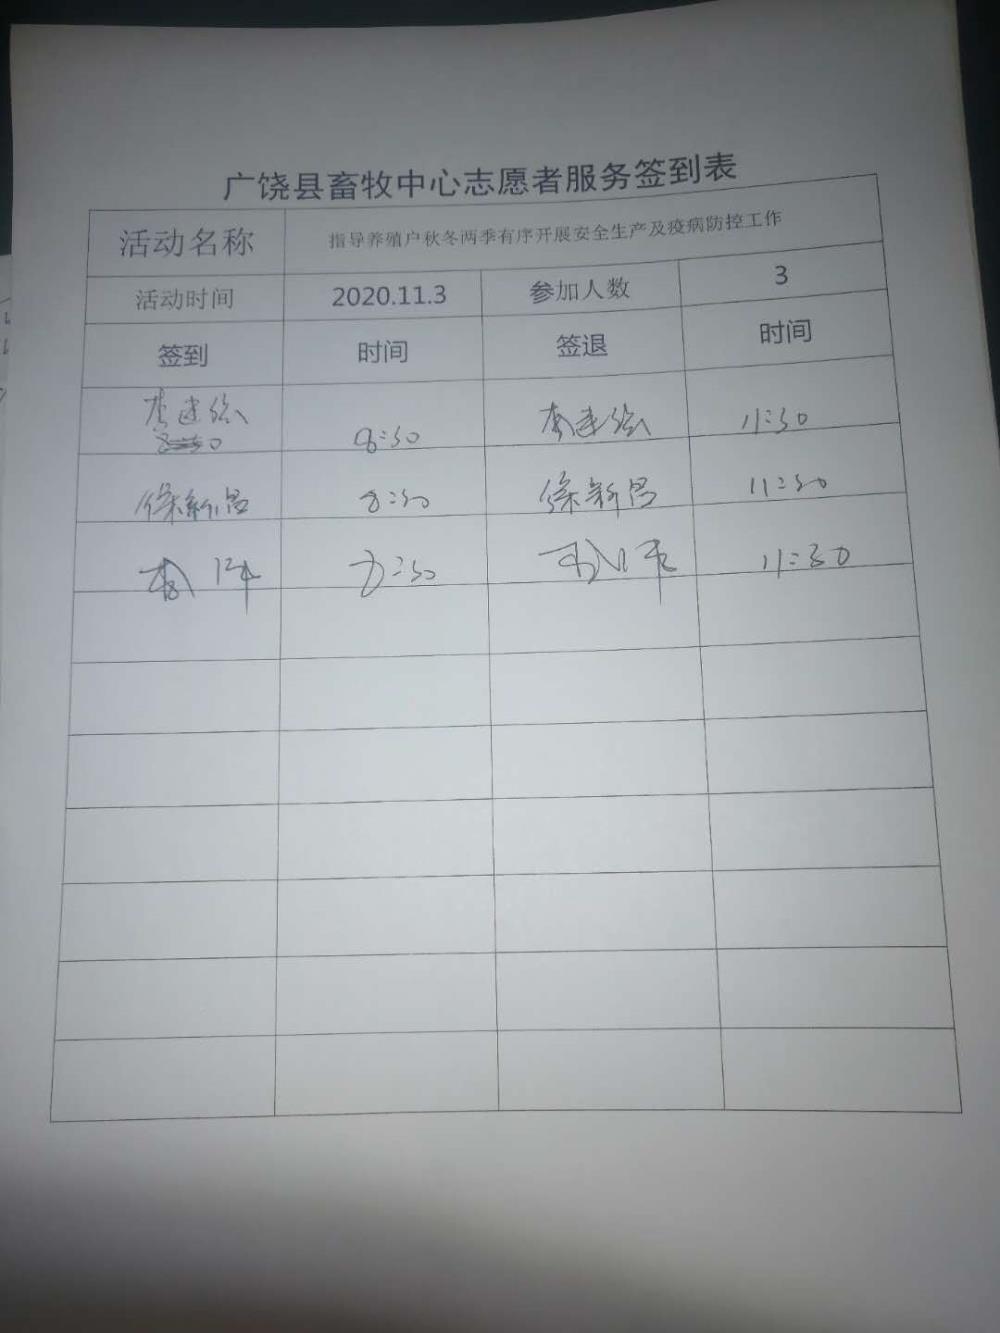 广饶县畜牧中心志愿者服务签到表
活动名称 指导养殖户秋冬两季有序开展安全生产及疫病防控工作
活动时间 2020.11.3 参加人数 3
签到 时间 签退 时间
8:30 11:30
徐新昌 8:30 徐新昌 11:30
8:30 11:30